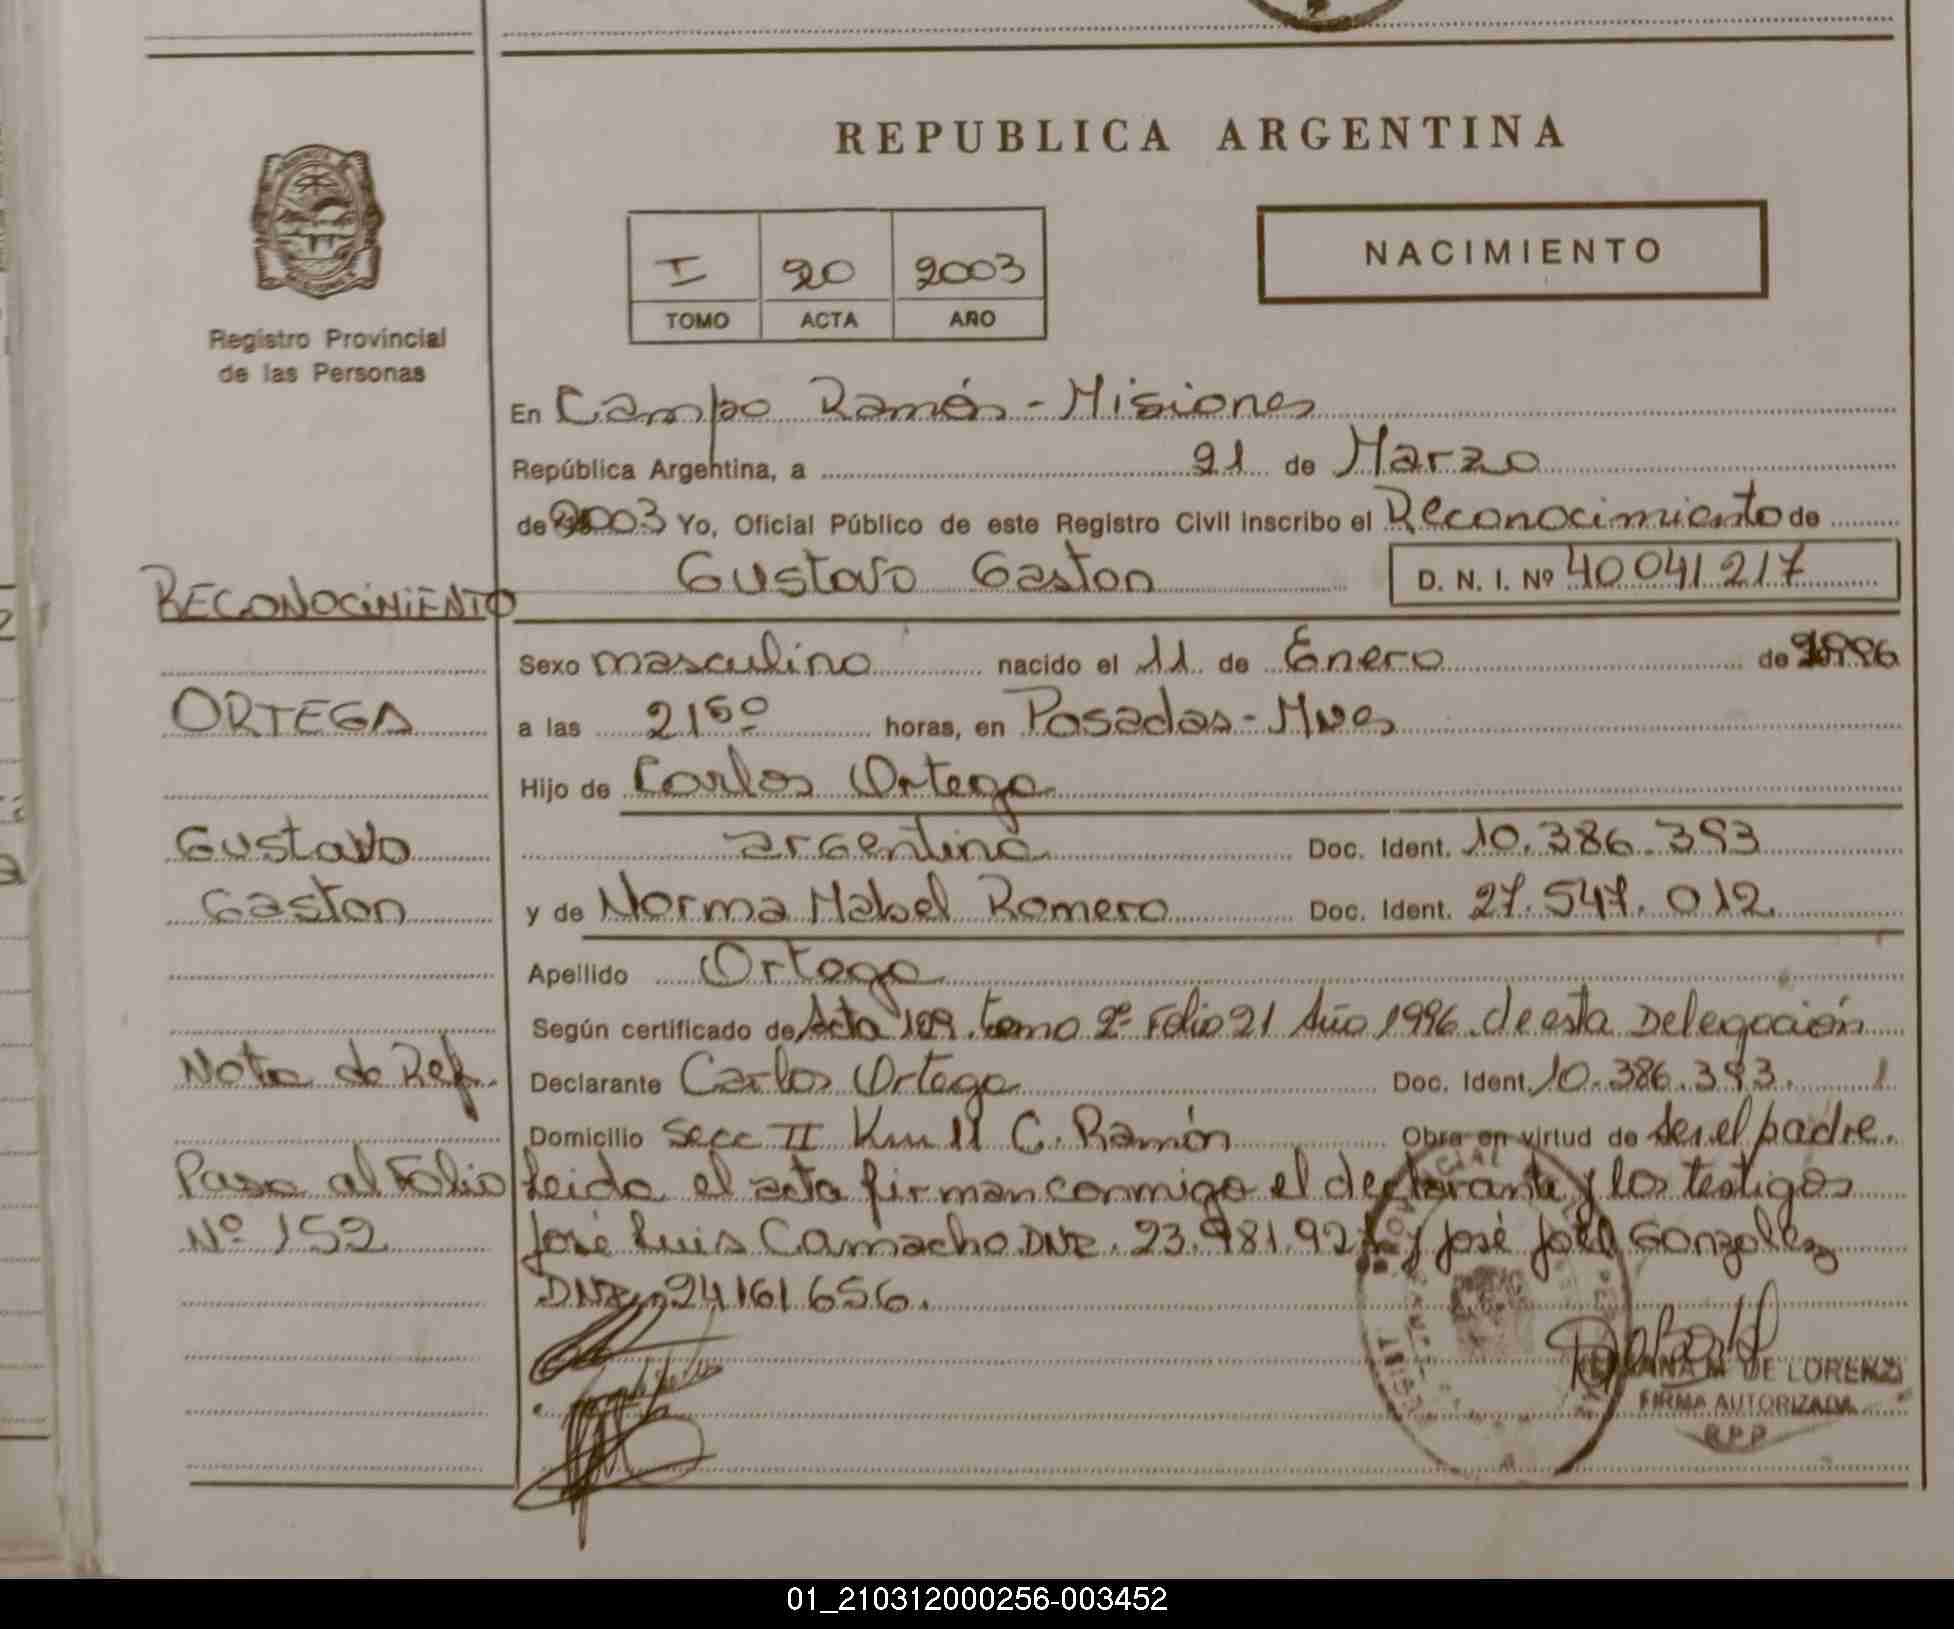 REPUBLICA ARGENTINA
I 20 2003
TOMO ACTA AÑO
NACIMIENTO
Registro Provincial
de las Personas
En Campo Ramón - Misiones
República Argentina, a 21 de Marzo
de 2003 Yo, Oficial Público de este Registro Civil inscribo el Reconocimiento de
Gustavo Gaston D. N. I. Nº 40041217
Sexo masculino nacido el 11 de Enero de 1996
a las 21 50 horas, en Posadas - Mnes
Hijo de Carlos Ortega
argentina Doc. Ident. 10.386.393
y de Norma Mabel Romero Doc. Ident. 27.547.012
Apellido Ortega
Según certificado de Acta 109 tomo 2º Folio 21 Año 1996 de esta Delegación
Declarante Carlos Ortega Doc. Ident. 10.386.393.
Domicilio Secc II Km 11 C. Ramón Obra en virtud de ser el padre.
Leida el acta firman conmigo el declarante y los testigos
José Luis Camacho DNI. 23.981.927 y José Joel Gonzalez
DNI. 24161656.
RECONOCIMIENTO
ORTEGA
Gustavo
Gaston
Nota de Ref.
Pasa al Folio
Nº 152
DE LORENZI
FIRMA AUTORIZADA
R.P.P.
01_210312000256-003452